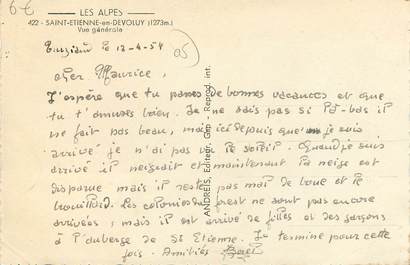 6€
LES ALPES
422 - SAINT-ETIENNE-en-DEVOLUY (1273m.)
Vue générale
le 12-4-54
05
Cher Maurice,
J'espère que tu passes de bonnes vacances et que
tu t'amuses bien. Je ne sais pas si là-bas il
ne fait pas beau, mais ici depuis que je suis
arrivé je n'ai pas vu le soleil. Quand je suis
arrivé il neigeait et maintenant la neige est
disparue mais il reste pas mal de boue et le
brouillard. Les colonies de Brest ne sont pas encore
arrivées, mais il est arrivé de filles et des garçons
à l'auberge de St Etienne. Je termine pour cette
fois. Amitiés
ANDRÉIS, Editeur, Gap - Reprod. int.